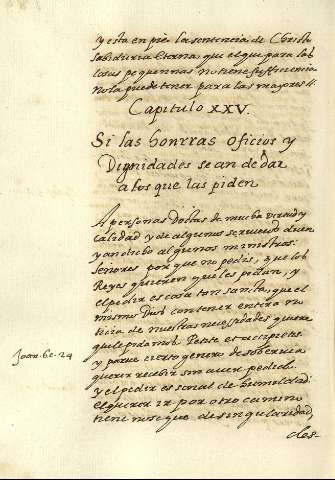 y esta en pie la sentencia de Christo
sabiduria eterna que el que para las
cosas pequeñas no tiene sufficiencia
no la puede tener para las mayores
Capitulo XXV.
Si las honrras oficios y
Dignidades se an de dar
a los que las piden
A personas doctas de mucha virtud y
calidad y de algunos se
y an dicho algunos ministros:
señores por que no pedis, que los
Reyes quieren que les pidan, y
el pedir es cosa tan sancta, que el
mismo Dios con tener entera no
ticia de nuestras necesidades quiere
que le pidamos. Petite et accipietis
y parece cierto genero de soberuia
querer recebir sin auer pedido
y el pedir es señal de humildad:
el querer ir por otro camino
tiene no se que de singularidad,
Joan. 6 c. 24
des-